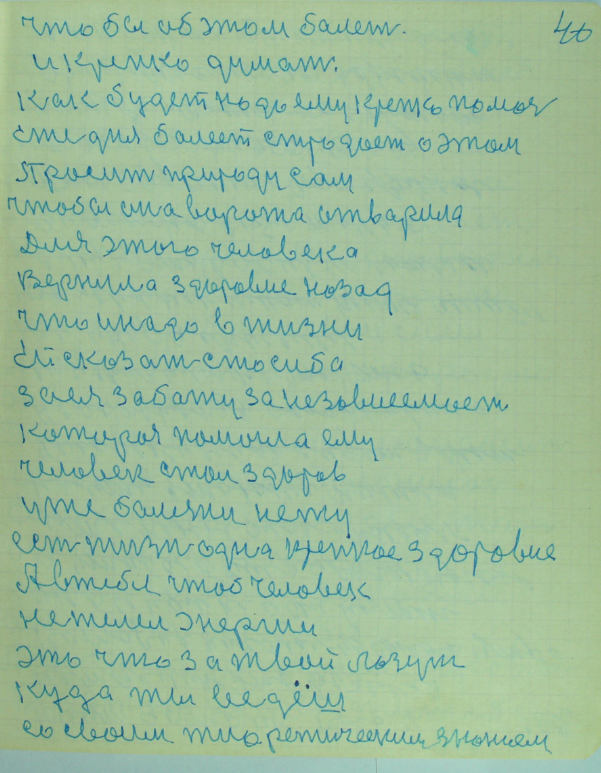 46
что бы об этом балет.
и крепко думат.
как будет надо ему крепко помоч
сие дня балеет страдает о этом
Просит природу сам
чтобы она ворота отварила
Для этого человека
Вернула здоровие назад
что инадо в жизни
Ей сказат спосиба
зоея заботу за незовисемост
которая помогла ему
человек стал здоров
уже балезни нету
ест жизн одна крепкое здоровие
Авы чтоб человек
не имел энергии
это что за твой лозунг
куда ты ведёш
со своим тиоретическим знанием